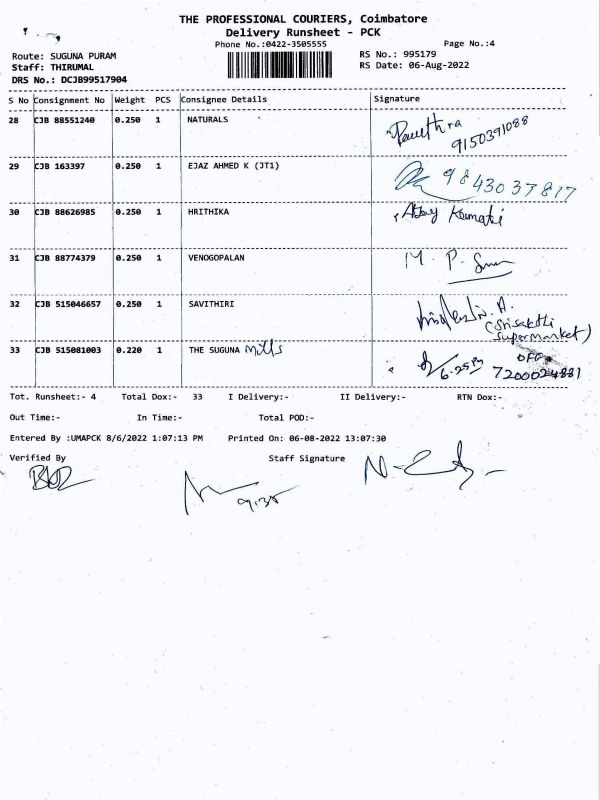 THE PROFESSIONAL COURIERS, Coimbatore
Delivery Runsheet - PCK
Phone No.:0422-3505555 Page No.:4
Route: SUGUNA PURAM RS No.: 995179
Staff: THIRUMAL RS Date: 06-Aug-2022
DRS No.: DCJB99517904
S No Consignment No Weight PCS Consignee Details Signature
28 CJB 88551240 0.250 1 NATURALS
9150391088
29 CJB 163397 0.250 1 EJAZ AHMED K (JT1) 9843037817
30 CJB 88626985 0.250 1 HRITHIKA
31 CJB 88774379 0.250 1 VENOGOPALAN M. P.
32 CJB 515046657 0.250 1 SAVITHIRI
(Srisakthi
Supermarket)
33 CJB 515081003 0.220 1 THE SUGUNA Mills
7200024881
Tot. Runsheet:- 4 Total Dox:- 33 I Delivery:- II Delivery:- RTN Dox:-
Out Time:- In Time:- Total POD:-
Entered By :UMAPCK 8/6/2022 1:07:13 PM Printed On: 06-08-2022 13:07:30
Verified By Staff Signature